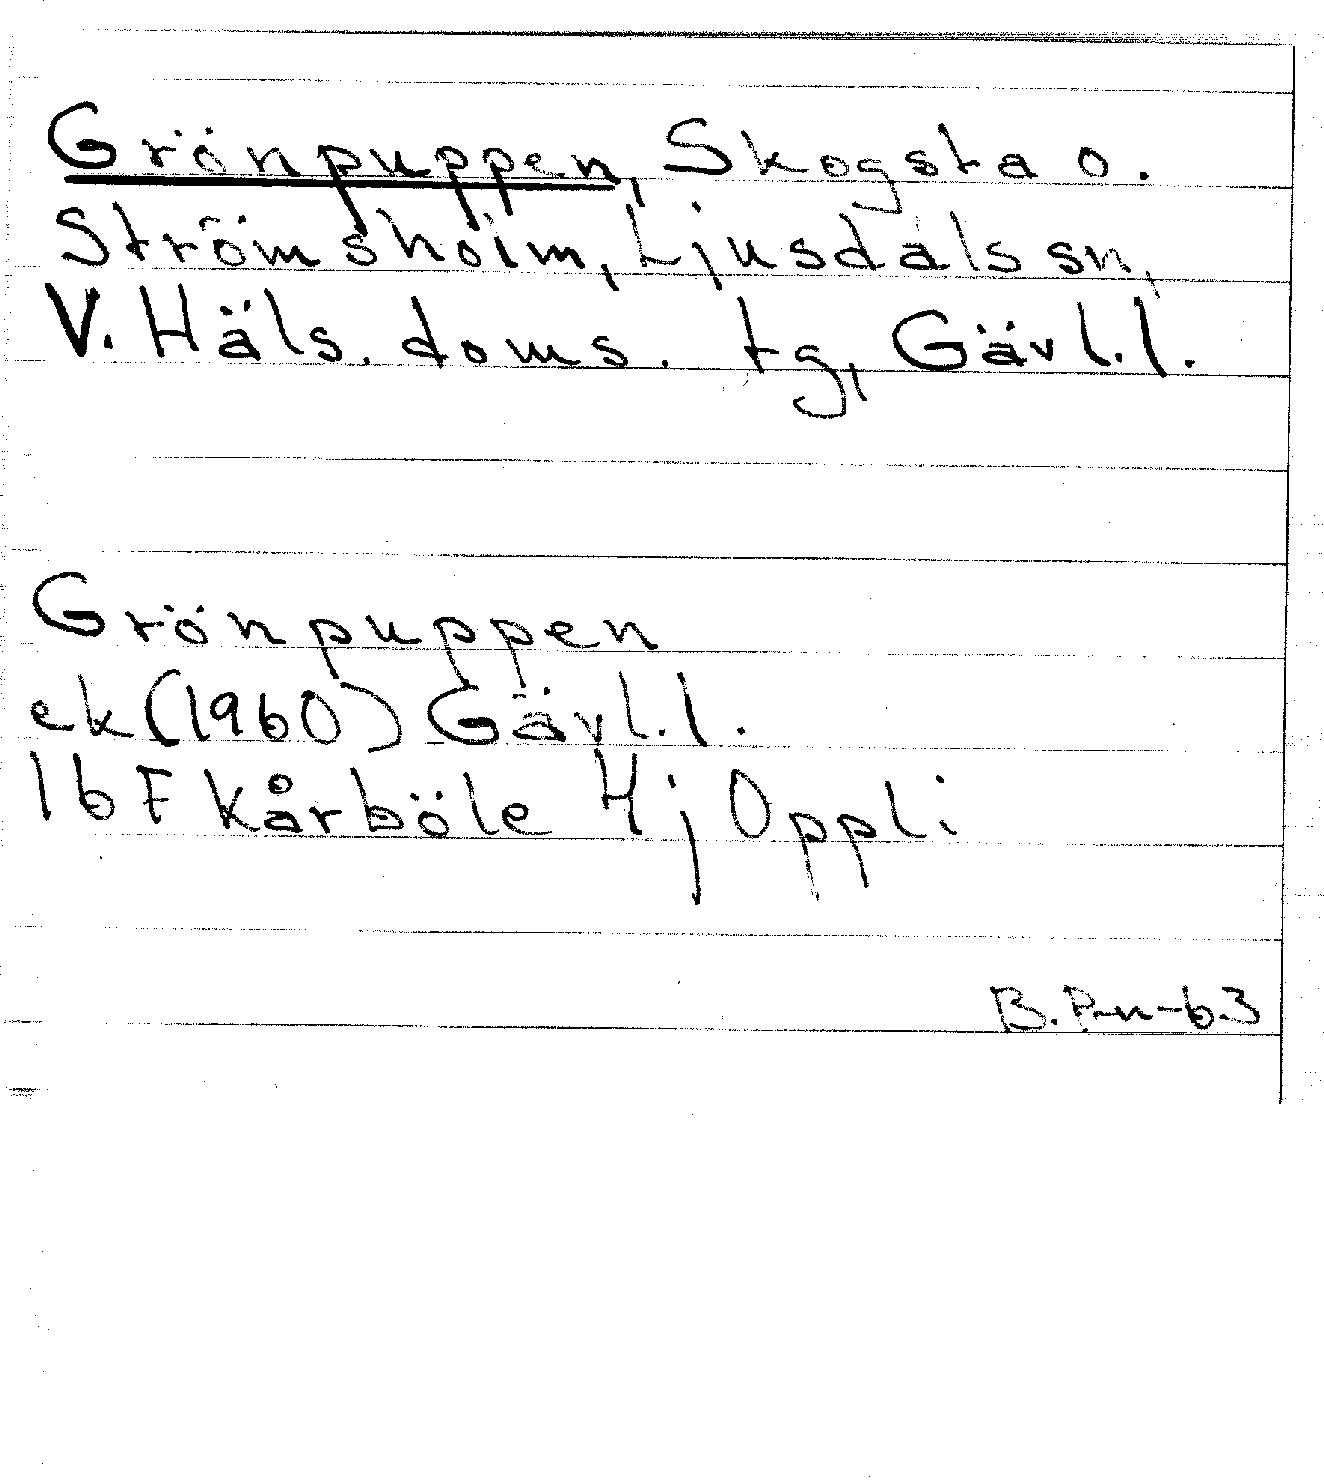 Grönpuppen, Skogsta o.
Strömsholm, Ljusdals sn,
V. Häls. doms. tg, Gävl.l.
Grönpuppen
ek (1960) Gävl.l.
16F Kårböle 4j Oppli
B.P-n-63